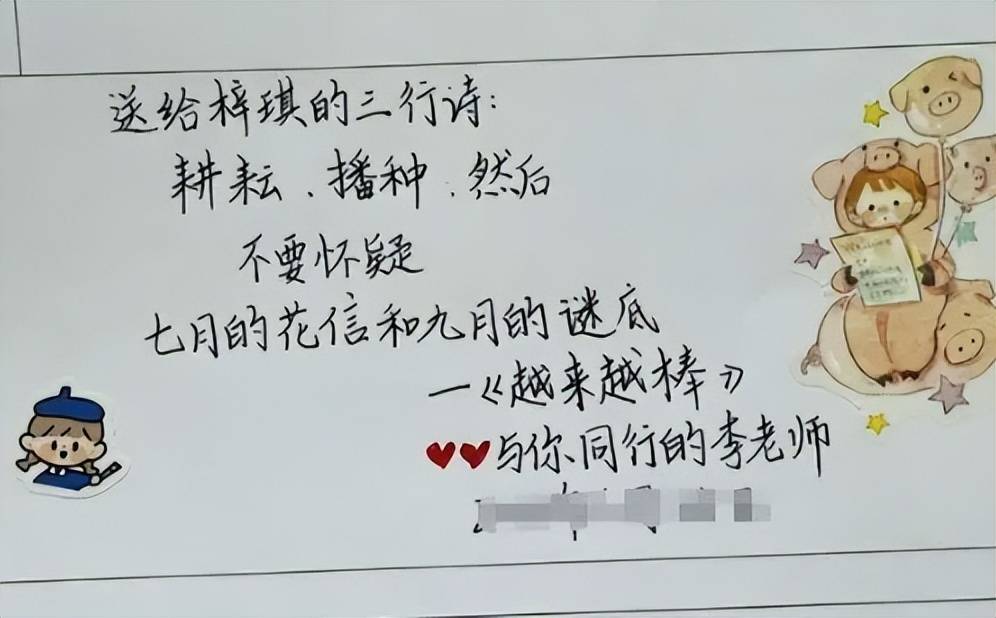 送给梓琪的三行诗:
耕耘、播种、然后
不要怀疑
七月的花信和九月的谜底
—《越来越棒》
与你同行的李老师